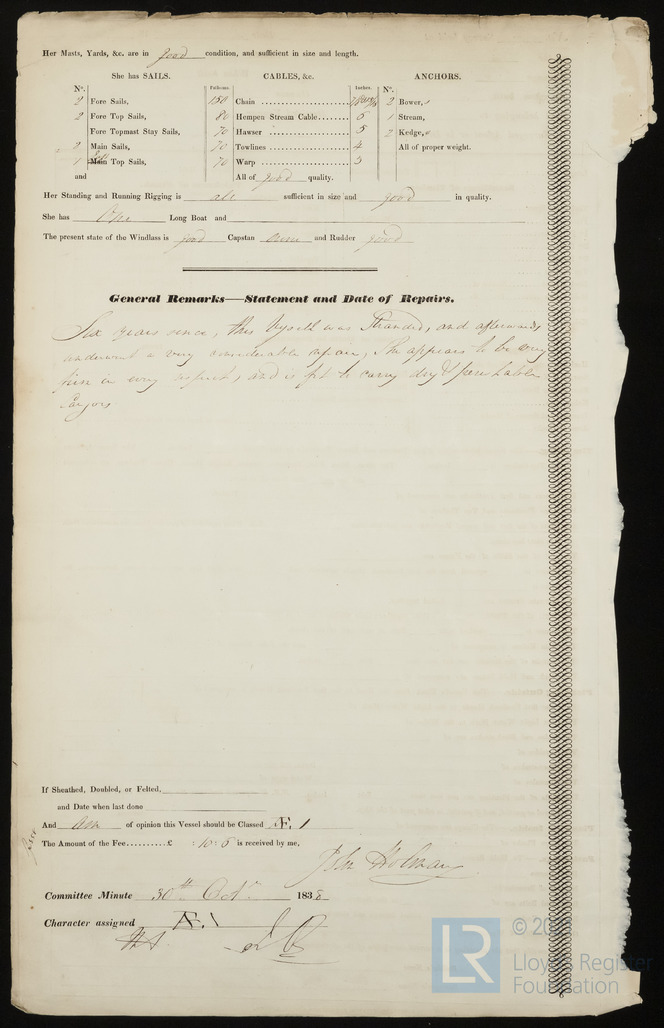 Her Masts, Yards, &c. are in good condition, and sufficient in size and length.
She has SAILS. CABLES, &c. ANCHORS.
Nº. Fathoms. Inches. Nº.
2 Fore Sails, 150 Chain 2 Bower,
2 Fore Top Sails, 80 Hempen Stream Cable 6 1 Stream,
Fore Topmast Stay Sails, 70 Hawser 5 2 Kedge,
2 Main Sails, 70 Towlines 4 All of proper weight.
1 Main Top Sails, 70 Warp 3
and All of good quality.
Her Standing and Running Rigging is all sufficient in size and good in quality.
She has One Long Boat and
The present state of the Windlass is good Capstan and Rudder good
General Remarks—Statement and Date of Repairs.
Six years since, this Vessel was Stranded, and afterwards
underwent a very considerable repair, She appears to be very
firm in every aspect, and is fit to carry dry &
Cargoes
If Sheathed, Doubled, or Felted,
and Date when last done
And am of opinion this Vessel should be Classed Æ. 1
The Amount of the Fee..........£ : 10 : 6 is received by me,
John Holman
Committee Minute 30th Octr 1838
Character assigned Æ. 1
LR
Lloyd's Register
Foundation